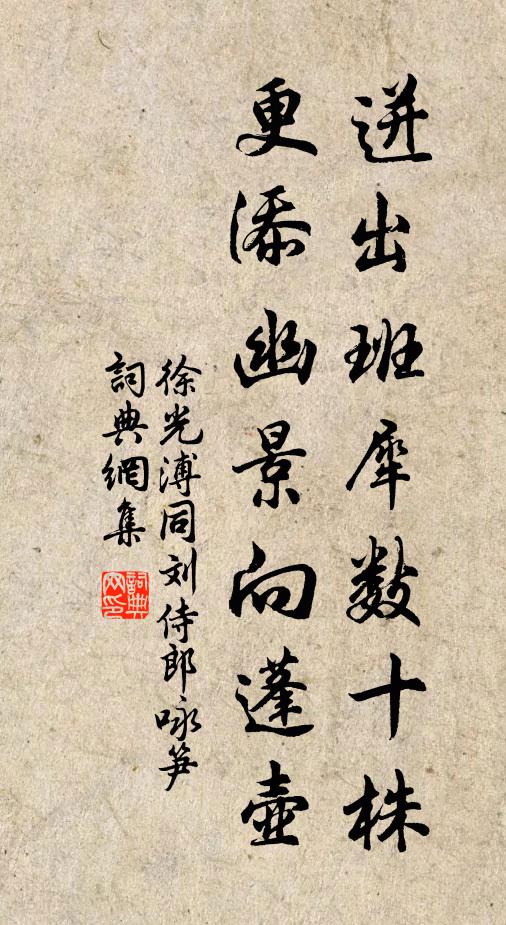 迸出班犀數十株
更添幽景向蓬壺
徐光溥同刘侍郎咏笋
詞典網集
詞典网印